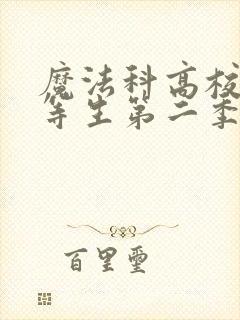 魔法科高校
等生第二季
百里璽